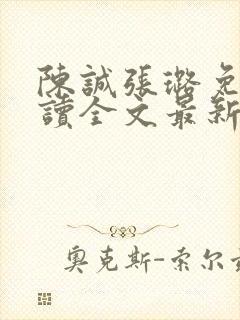 陳誠張璐免
讀全文最新
奧克斯-索尔